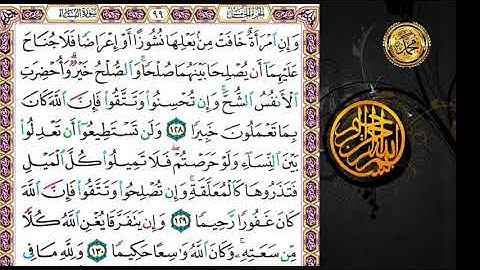 سورة النساء
٩٩
الجزء الخامس
وَإِنِ ٱمْرَأَةٌ خَافَتْ مِنۢ بَعْلِهَا نُشُوزًا أَوْ إِعْرَاضًا فَلَا جُنَاحَ
عَلَيْهِمَآ أَن يُصْلِحَا بَيْنَهُمَا صُلْحًا ۚ وَٱلصُّلْحُ خَيْرٌ ۗ وَأُحْضِرَتِ
ٱلْأَنفُسُ ٱلشُّحَّ ۚ وَإِن تُحْسِنُوا۟ وَتَتَّقُوا۟ فَإِنَّ ٱللَّهَ كَانَ
بِمَا تَعْمَلُونَ خَبِيرًا ١٢٨ وَلَن تَسْتَطِيعُوٓا۟ أَن تَعْدِلُوا۟
بَيْنَ ٱلنِّسَآءِ وَلَوْ حَرَصْتُمْ ۖ فَلَا تَمِيلُوا۟ كُلَّ ٱلْمَيْلِ
فَتَذَرُوهَا كَٱلْمُعَلَّقَةِ ۚ وَإِن تُصْلِحُوا۟ وَتَتَّقُوا۟ فَإِنَّ ٱللَّهَ
كَانَ غَفُورًا رَّحِيمًا ١٢٩ وَإِن يَتَفَرَّقَا يُغْنِ ٱللَّهُ كُلًّا
مِّن سَعَتِهِۦ ۚ وَكَانَ ٱللَّهُ وَٰسِعًا حَكِيمًا ١٣٠ وَلِلَّهِ مَا فِى
محمد
بسم الله الرحمن الرحيم